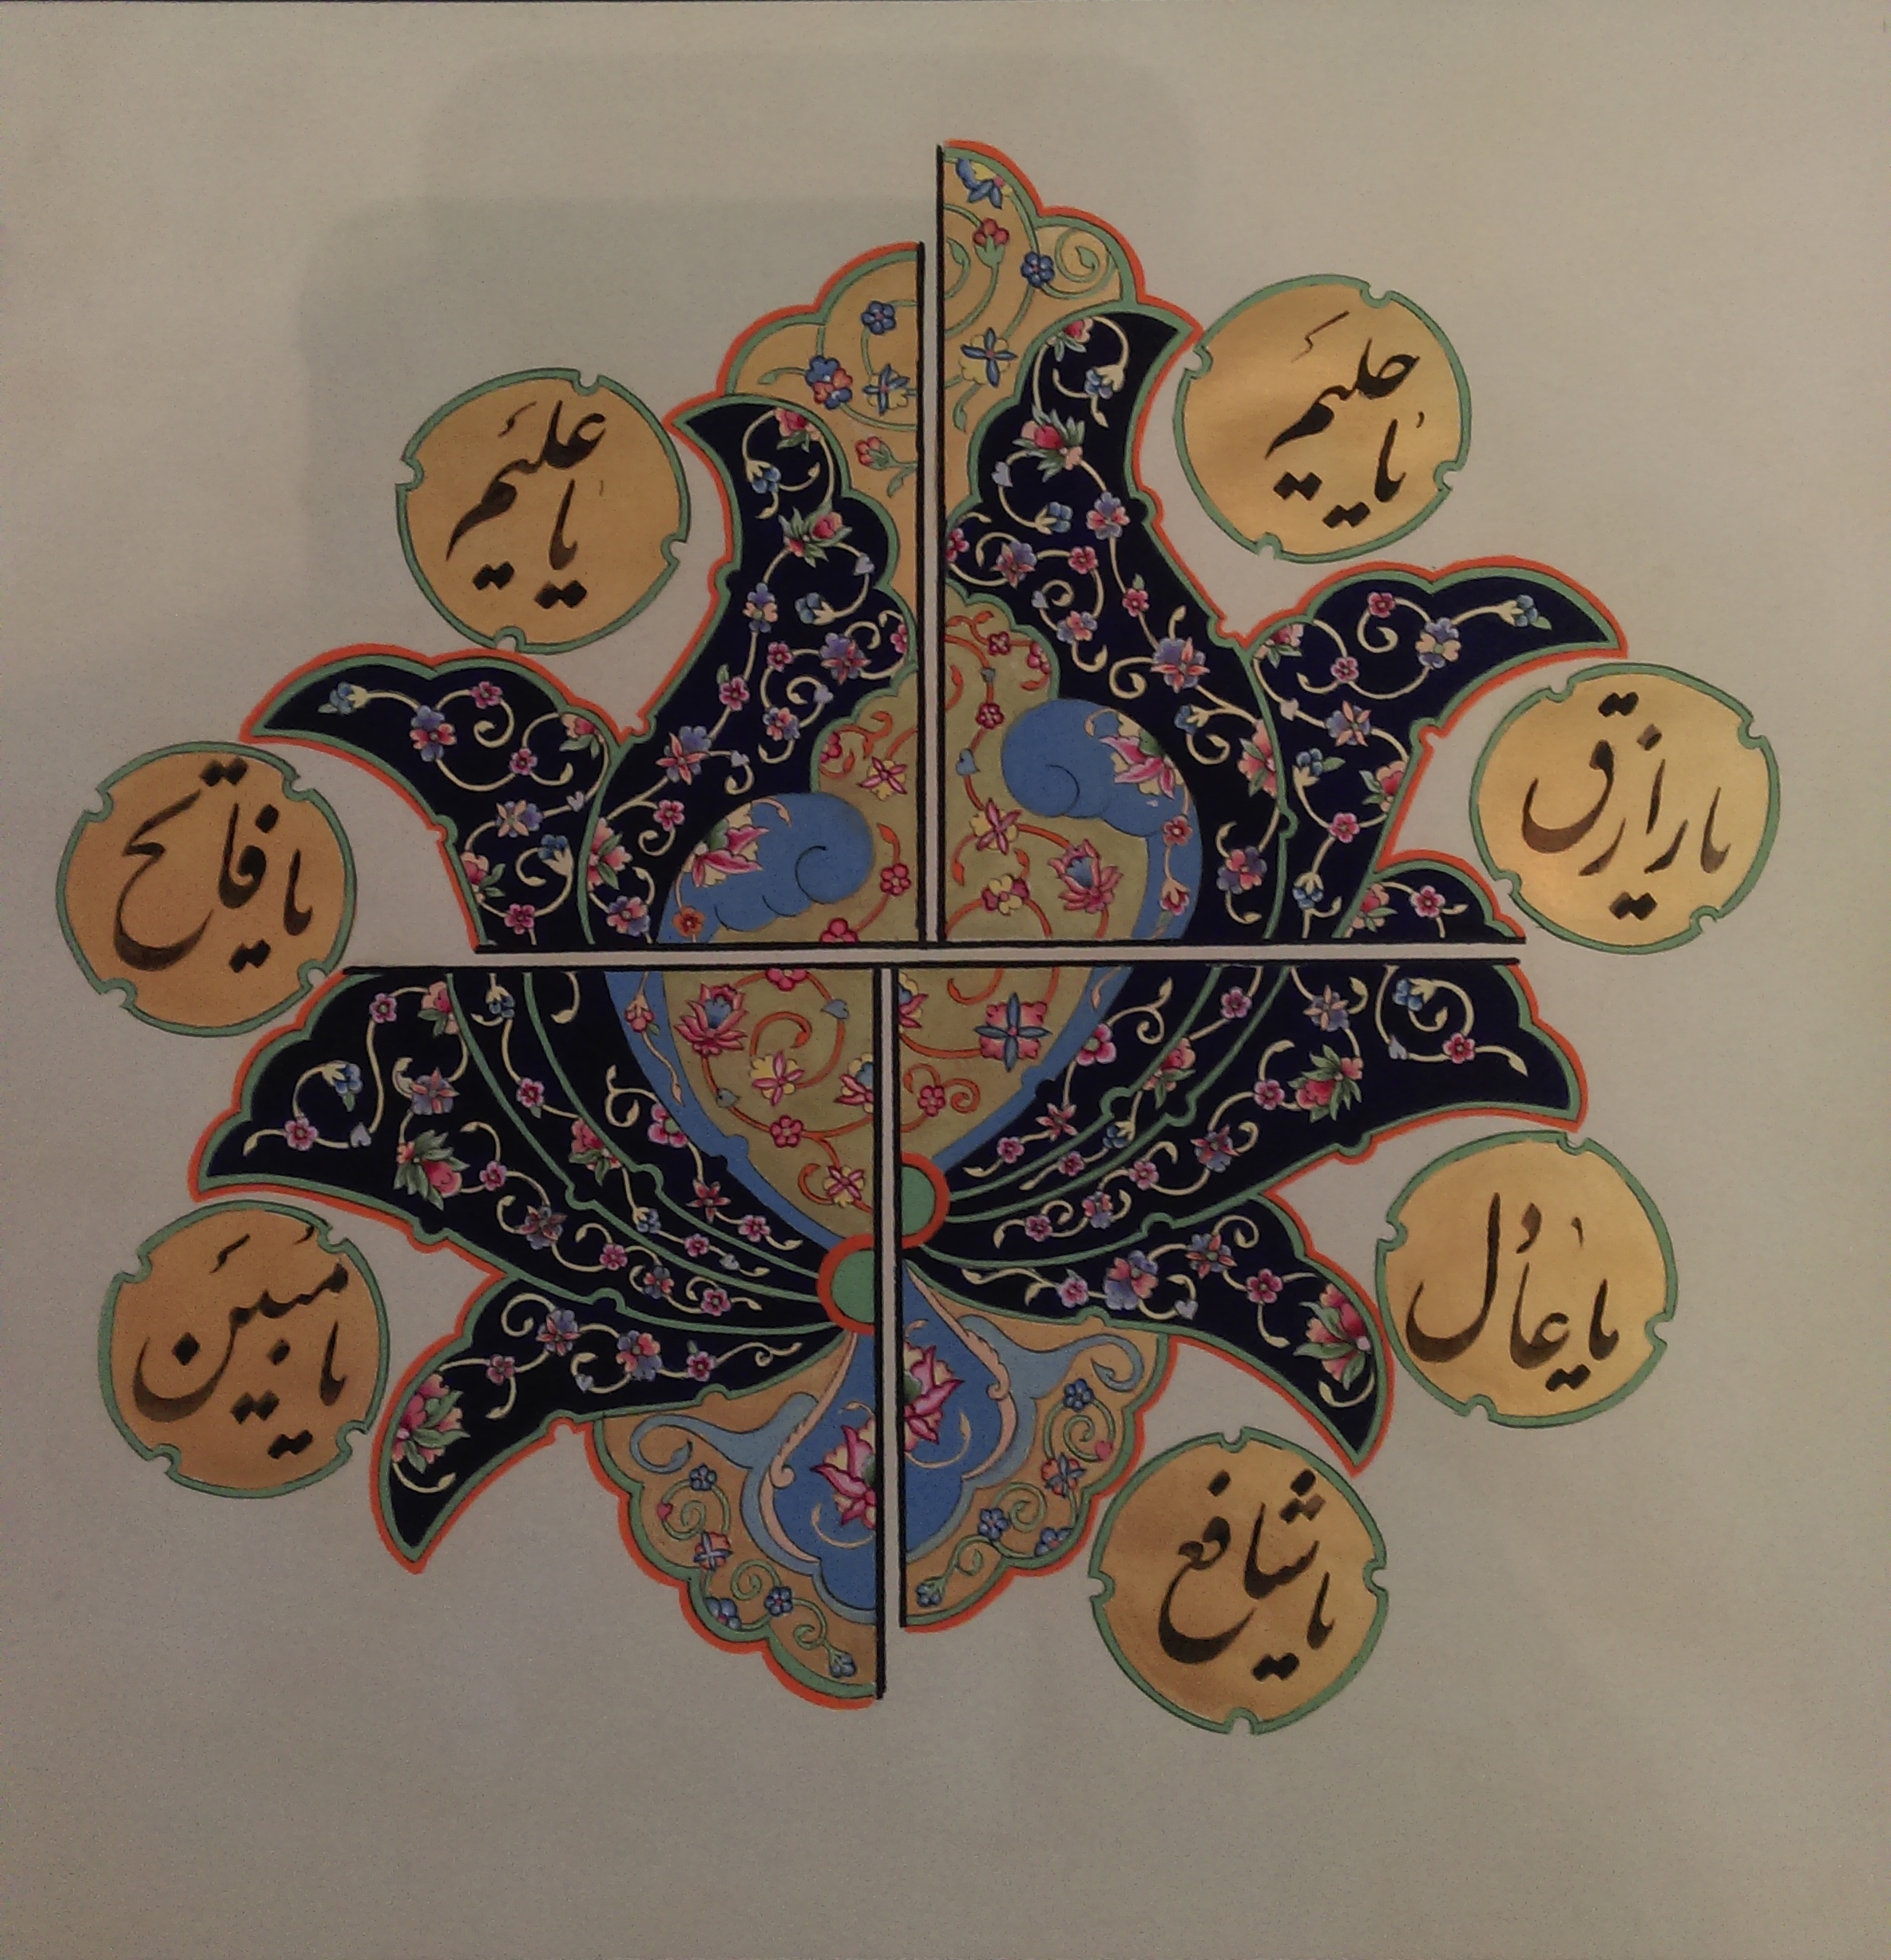 یا حلیم
یا علیم
یا رازق
یا فاتح
یا عادل
یا مبین
یا شافع